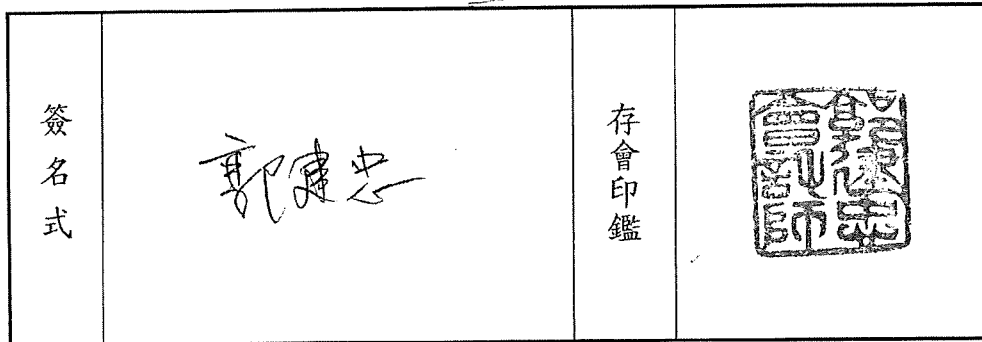 簽名式
郭建忠
存會印鑑
郭建忠
會計師